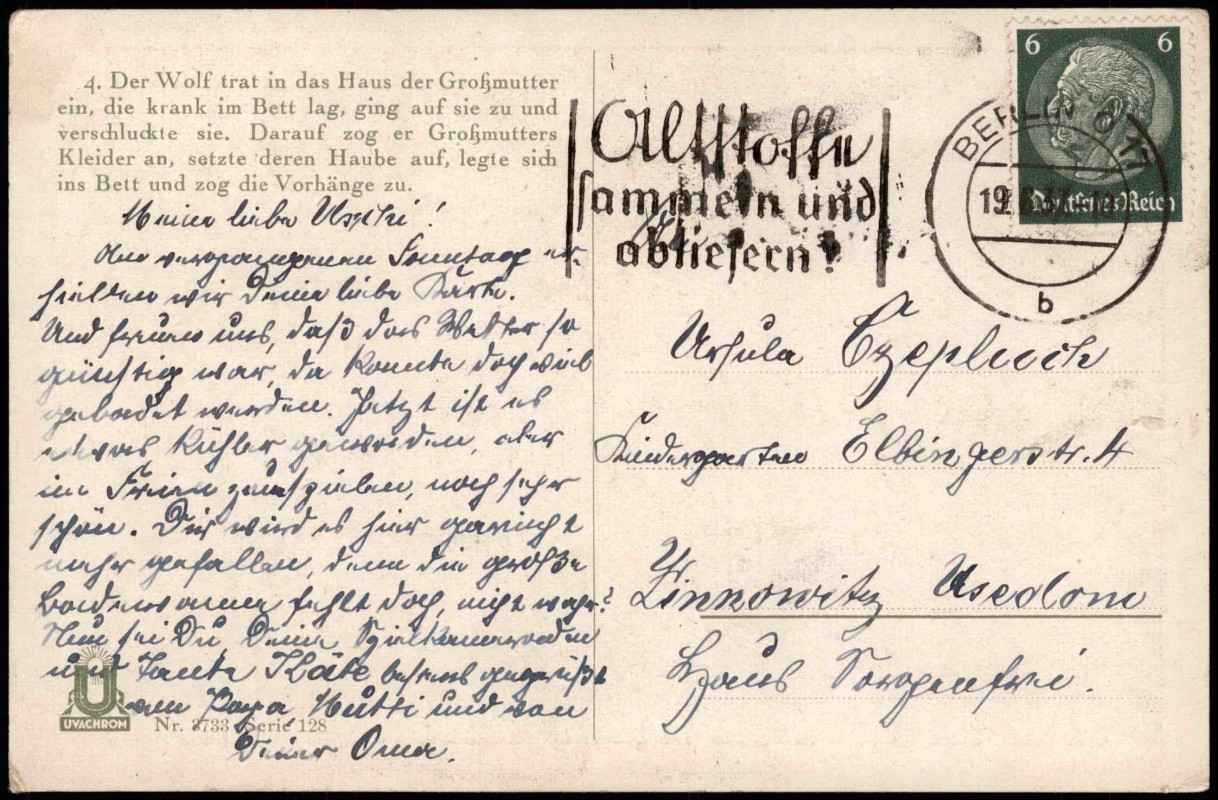 4. Der Wolf trat in das Haus der Großmutter
ein, die krank im Bett lag, ging auf sie zu und
verschluckte sie. Darauf zog er Großmutters
Kleider an, setzte deren Haube auf, legte sich
ins Bett und zog die Vorhänge zu.
Meine liebe Uschi!
Am vergangenen Sonntag er-
hielten wir Deine liebe Karte.
Und freuen uns, daß das Wetter so
günstig war, da konnte doch viel
gebadet werden. Jetzt ist es
etwas kühler geworden, aber
im Freien zum spielen, noch sehr
schön. Dir wird es hier garnicht
mehr gefallen, denn die große
Badewanne fehlt doch, nicht wahr?
Nun sei Du, Deine Spielkameraden
und Tante Käte bestens gegrüßt
von Papa Mutti und von
Deiner Oma.
UVACHROM
Nr. 3733 Serie 128
Altstoffe
sammeln und
abliefern!
6 6
Deutsches Reich
BERLIN O 17
19
b
Ursula Czepluch
Kindergarten Elbingerstr. 4
Zinnowitz Usedom
Haus Sorgenfrei.